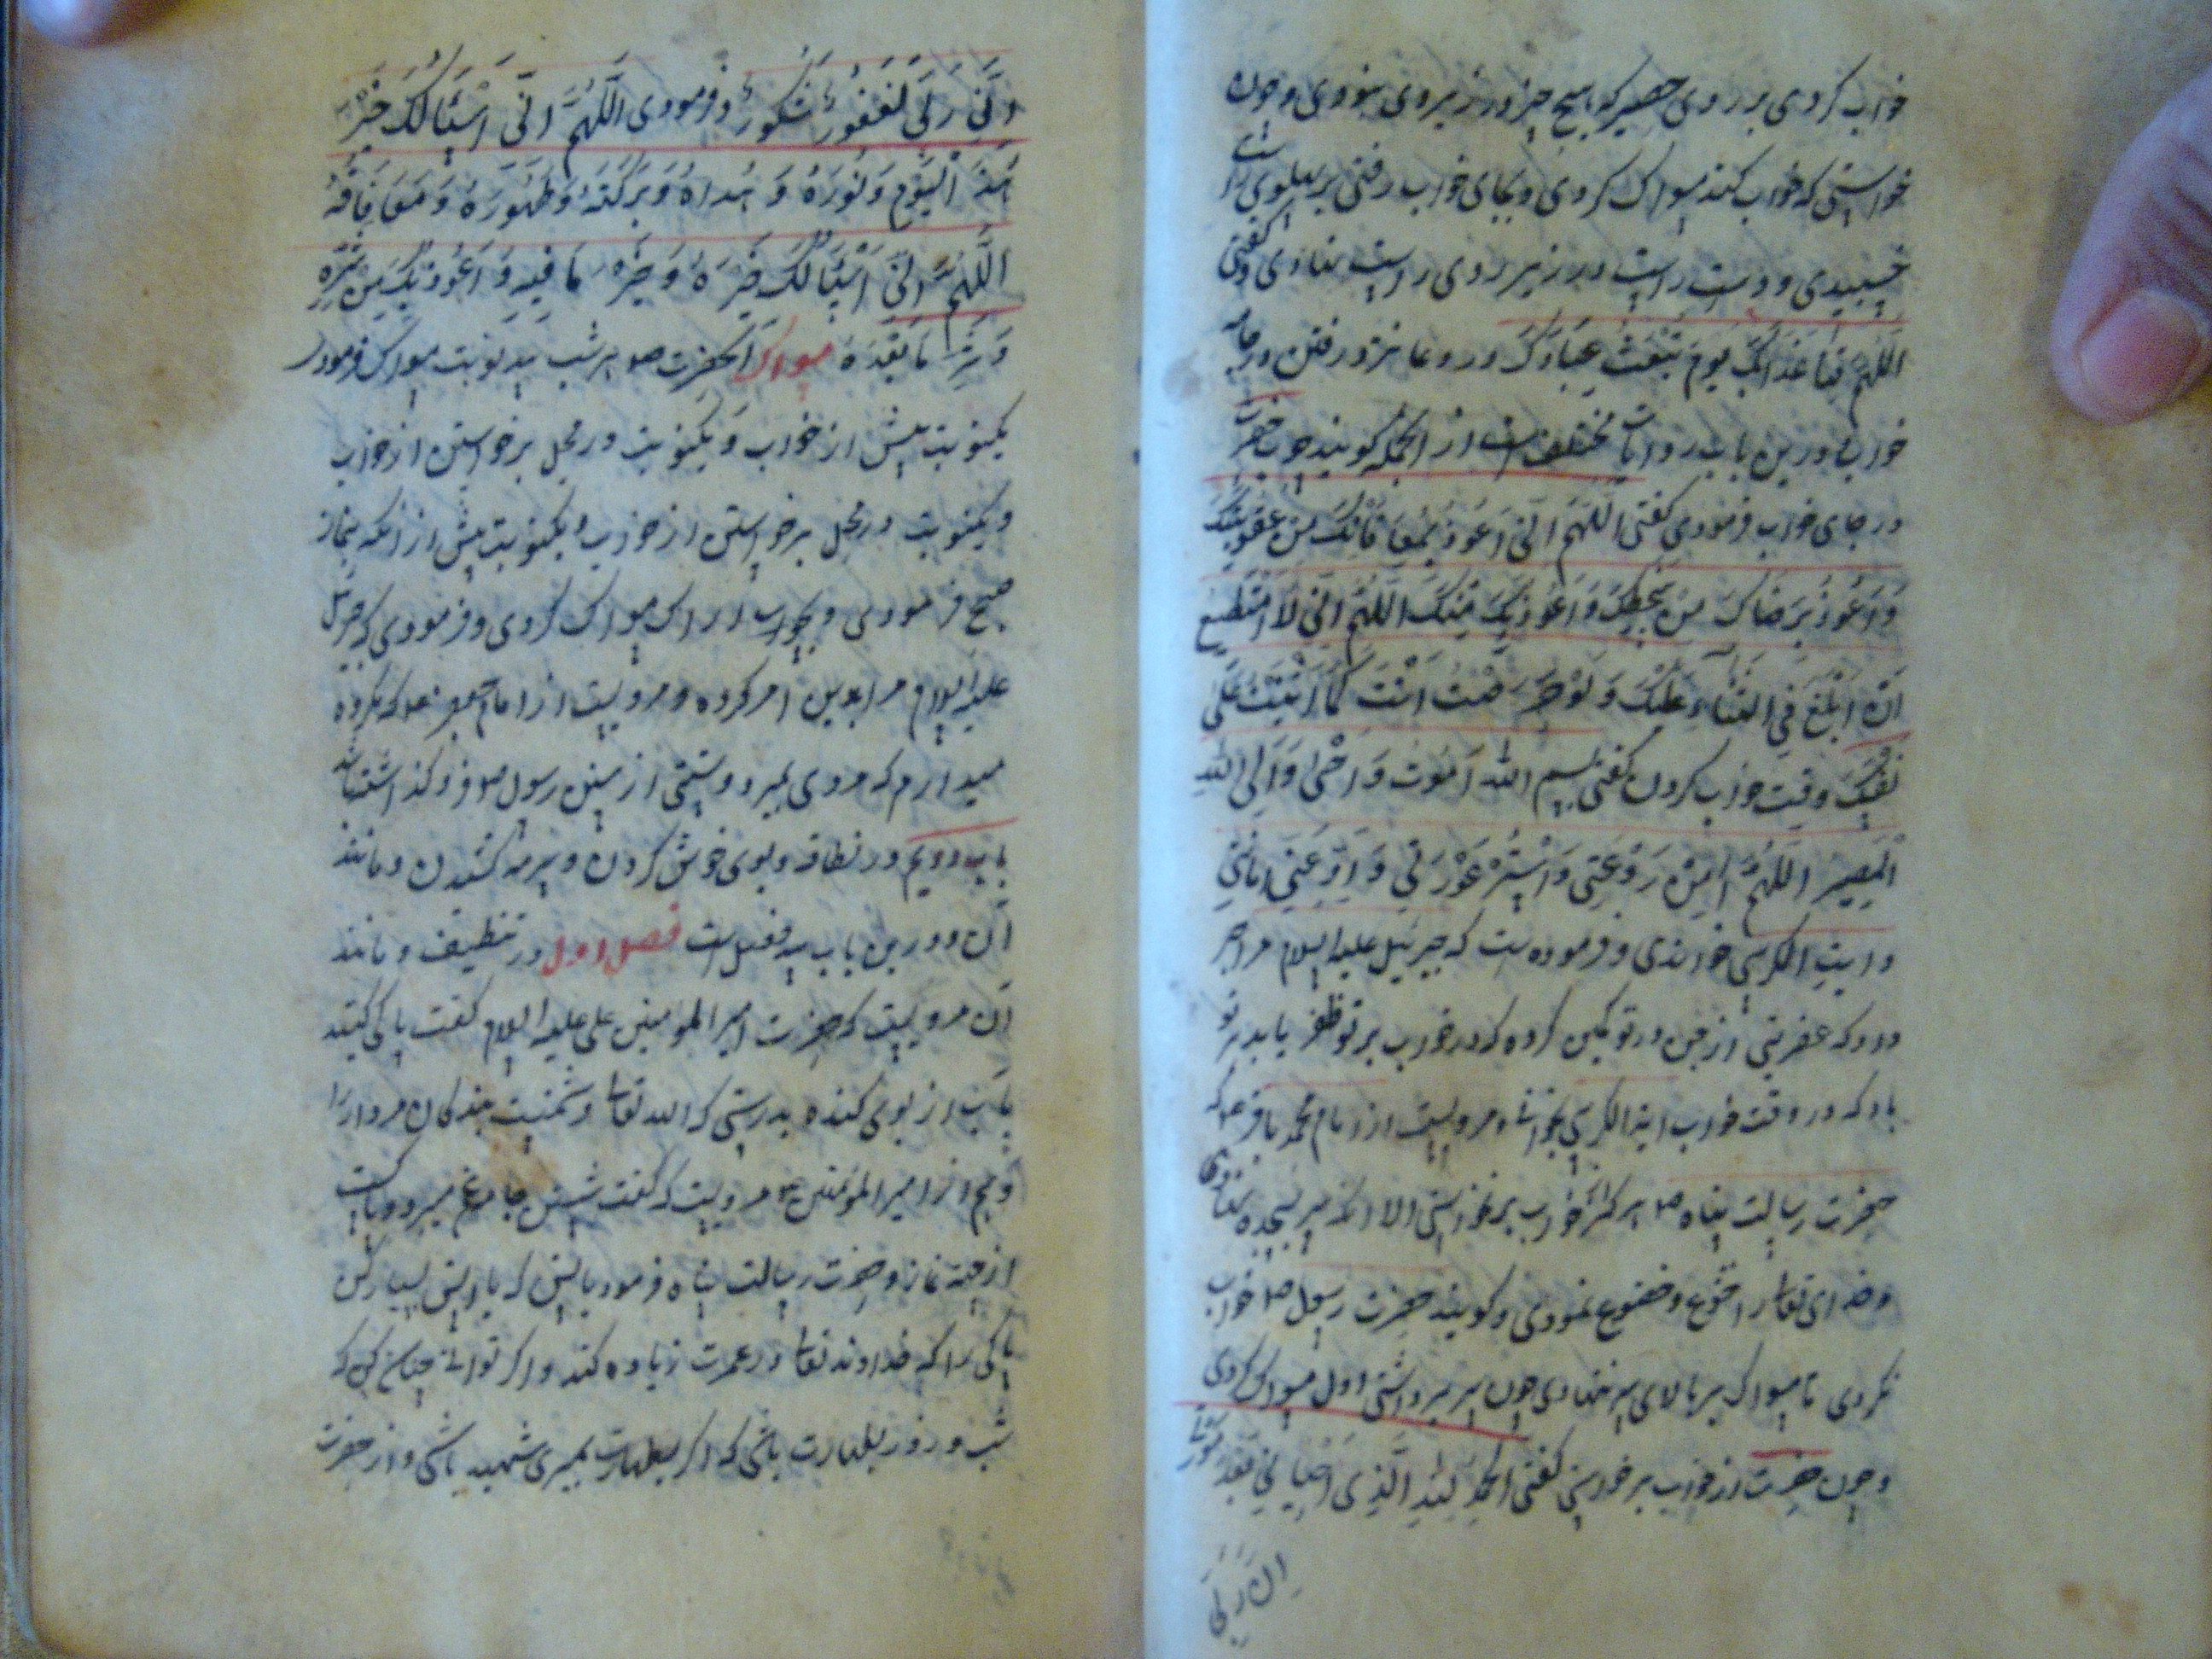 خواب کردی بر روی حصیر که هیچ چیز در زیر وی نبودی و چون
خواستی که خواب کند مسواک کردی و بجای خواب رفتی بر پهلوی راست
خسبیدی و دست راست در زیر روی راست نهادی و گفتی
اللَّهُمَّ قِنا عَذابَکَ یَومَ تَبْعَثُ عِبَادَکَ و دعا نزد رفتن در جامه
خواب و درین باب روایات مختلف است از انجمله گویند چون حضرت
در جای خواب فرمودی گفتی اَللَّهُمَّ اِنّی اَعُوذُ بِمُعَافَاتِکَ مِن عُقُوبَتِکَ
وَ اَعُوذُ بِرِضَاکَ مِن سَخَطِکَ وَ اَعُوذُ بِکَ مِنْکَ اَللَّهُمَّ اِنّی لَا اَسْتَطیعُ
اَنْ اَبْلُغَ فِی الثَّنَاءِ عَلَیْکَ وَ لَوْ حَرَصْتُ اَنْتَ کَمَا اَثْنَیْتَ عَلَی
نَفْسِکَ وقت خواب کردن گفتی بِسْمِ اللّه اَمُوتُ وَ اَحْیی وَ اِلَی اللّهِ
الْمَصِیر اَللَّهُمَّ اٰمِنْ رَوْعَتِی وَ اسْتُرْ عَوْرَتِی وَ اَدِّ عَنِّی اَمَانَتِی
و ایت الکرسی خواندی و فرموده است که جبرئیل علیه السلام مرا خبر
داد که عفریتی از جن در تو کمین کرده که در خواب بر تو ظفر یابد بر تو
باد که در وقت خواب ایة الکرسی بخوانی مرویست از امام محمد باقر ع که
حضرت رسالت پناه ص هرگز از خواب بر نخواستی الا انکه سر بسجده نهادی
و خدای تعالی را خشوع و خضوع نمودی و گویند حضرت رسول ص خواب
نکردی تا مسواک بر بالای سر ننهادی چون سر برداشتی اول مسواک کردی
و چون حضرت از خواب برخواستی گفتی الْحَمْدُ لِلّهِ الَّذِی اَحْیَانِی بَعْدَ مَوْتِی
اِنَّ رَبّی
اِنَّ رَبّی لَغَفُورٌ شَکُورٌ و فرمودی اَللَّهُمَّ اِنّی اَسْئَالُکَ خَیْرَ
هَذَا الْیَوْمِ وَ نُورَهُ وَ هُداهُ وَ بَرَکَتَهُ وَ طَهُورَهُ وَ مُعَافَاتَهُ
اَللَّهُمَّ اِنّی اَسْئَالُکَ خَیْرَهُ وَ خَیْرَ مَا فِیهِ وَ اَعُوذُ بِکَ مِنْ شَرِّهِ
وَ شَرِّ مَا بَعْدَهُ مسواک انحضرت ص هر شب سه نوبت مسواک فرمودی
یکنوبت پیش از خواب و یکنوبت در محل برخواستن از خواب
و یکنوبت در محل برخواستن از خواب و یکنوبت پیش از انکه بنماز
صبح فرمودی و بچوب اراک مسواک کردی و فرمودی که جبرئیل
علیه السلام مرا بدین امر کرده و مرویست از امام جعفر ع که مکروه
میدارم که مردی بمیرد و سنتی از سنن رسول ص فرو گذاشته باشد
باب دویم در نظافه و بوی خوش کردن و سرمه کشیدن و مانند
آن و درین باب سه فصل است فصل اول در تنظیف و مانند
آن مرویست که حضرت امیر المؤمنین علی علیه السلام گفت پاکی کنید
بآب از بوی گنده بدرستی که الله تعالی دشمنست بندکان مردار را
و هم از امیر المؤمنین ع مرویست که گفت شستن جامه غم میبرد و پاکیست
از جهة نماز و حضرت رسالت پناه فرمود بانس که یا انس بسیار کن
پاکی را که خداوند تعالی در عمرت زیاده کند و اگر توانی چنان کن که
شب و روز بطهارت باشی که اگر بطهارت بمیری شهید باشی و از حضرت